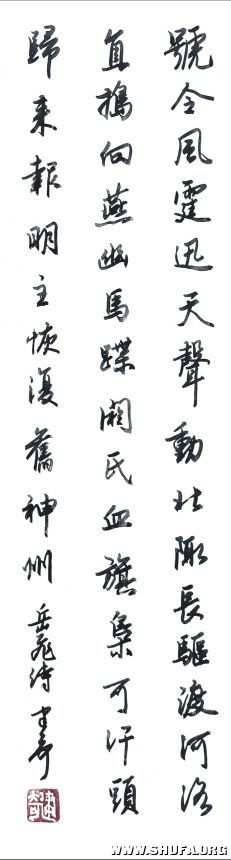 號令風霆迅天聲動北陬長驅渡河洛
直搗向燕幽馬蹀閼氏血旗梟可汗頭
歸來報明主恢復舊神州岳飛詩
WWW.SHUFA.ORG